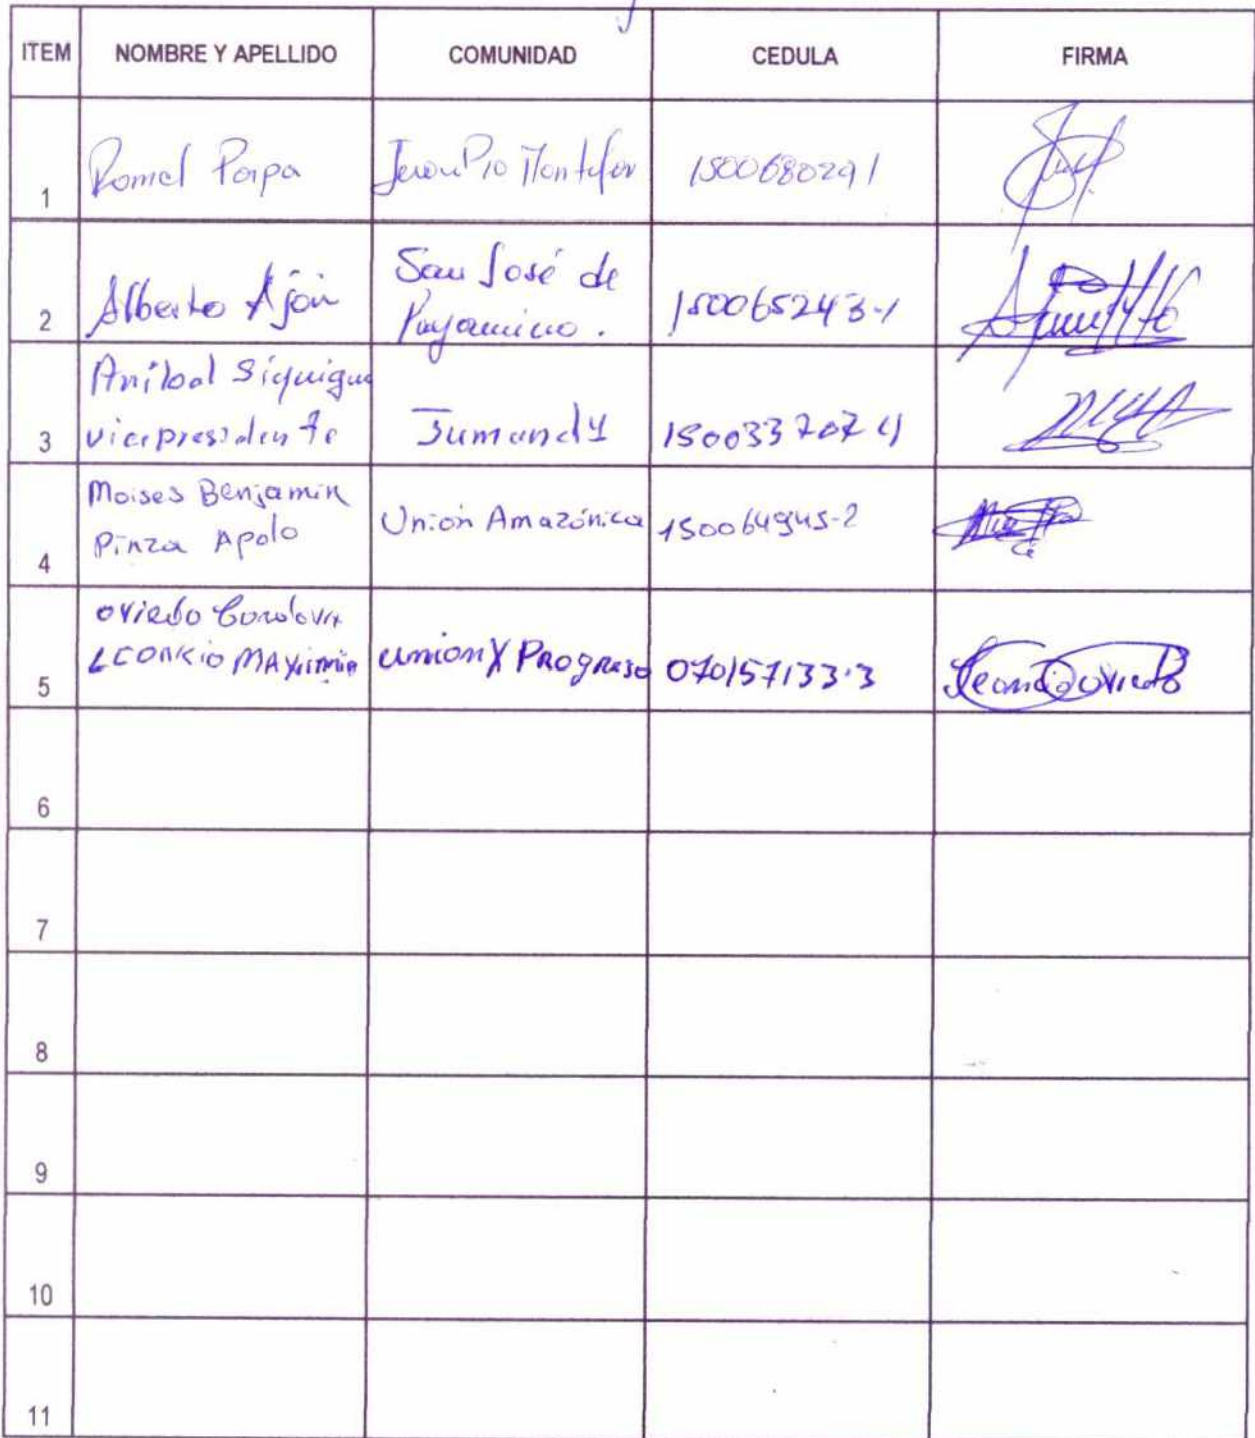 ITEM NOMBRE Y APELLIDO COMUNIDAD CEDULA FIRMA
1 Romel Papa 1500680291
2 Alberto Ajón San José de Payamino. 150065243-1
3 Aníbal Siquigua vicepresidente Jumandy 150033707 4
4 Moises Benjamin Pinza Apolo Unión Amazónica 150064945-2
5 OVIEDO Cordova LEONCIO MAXIMIN union Y PROGRESO 070157133-3 Leoncio Oviedo
6
7
8
9
10
11